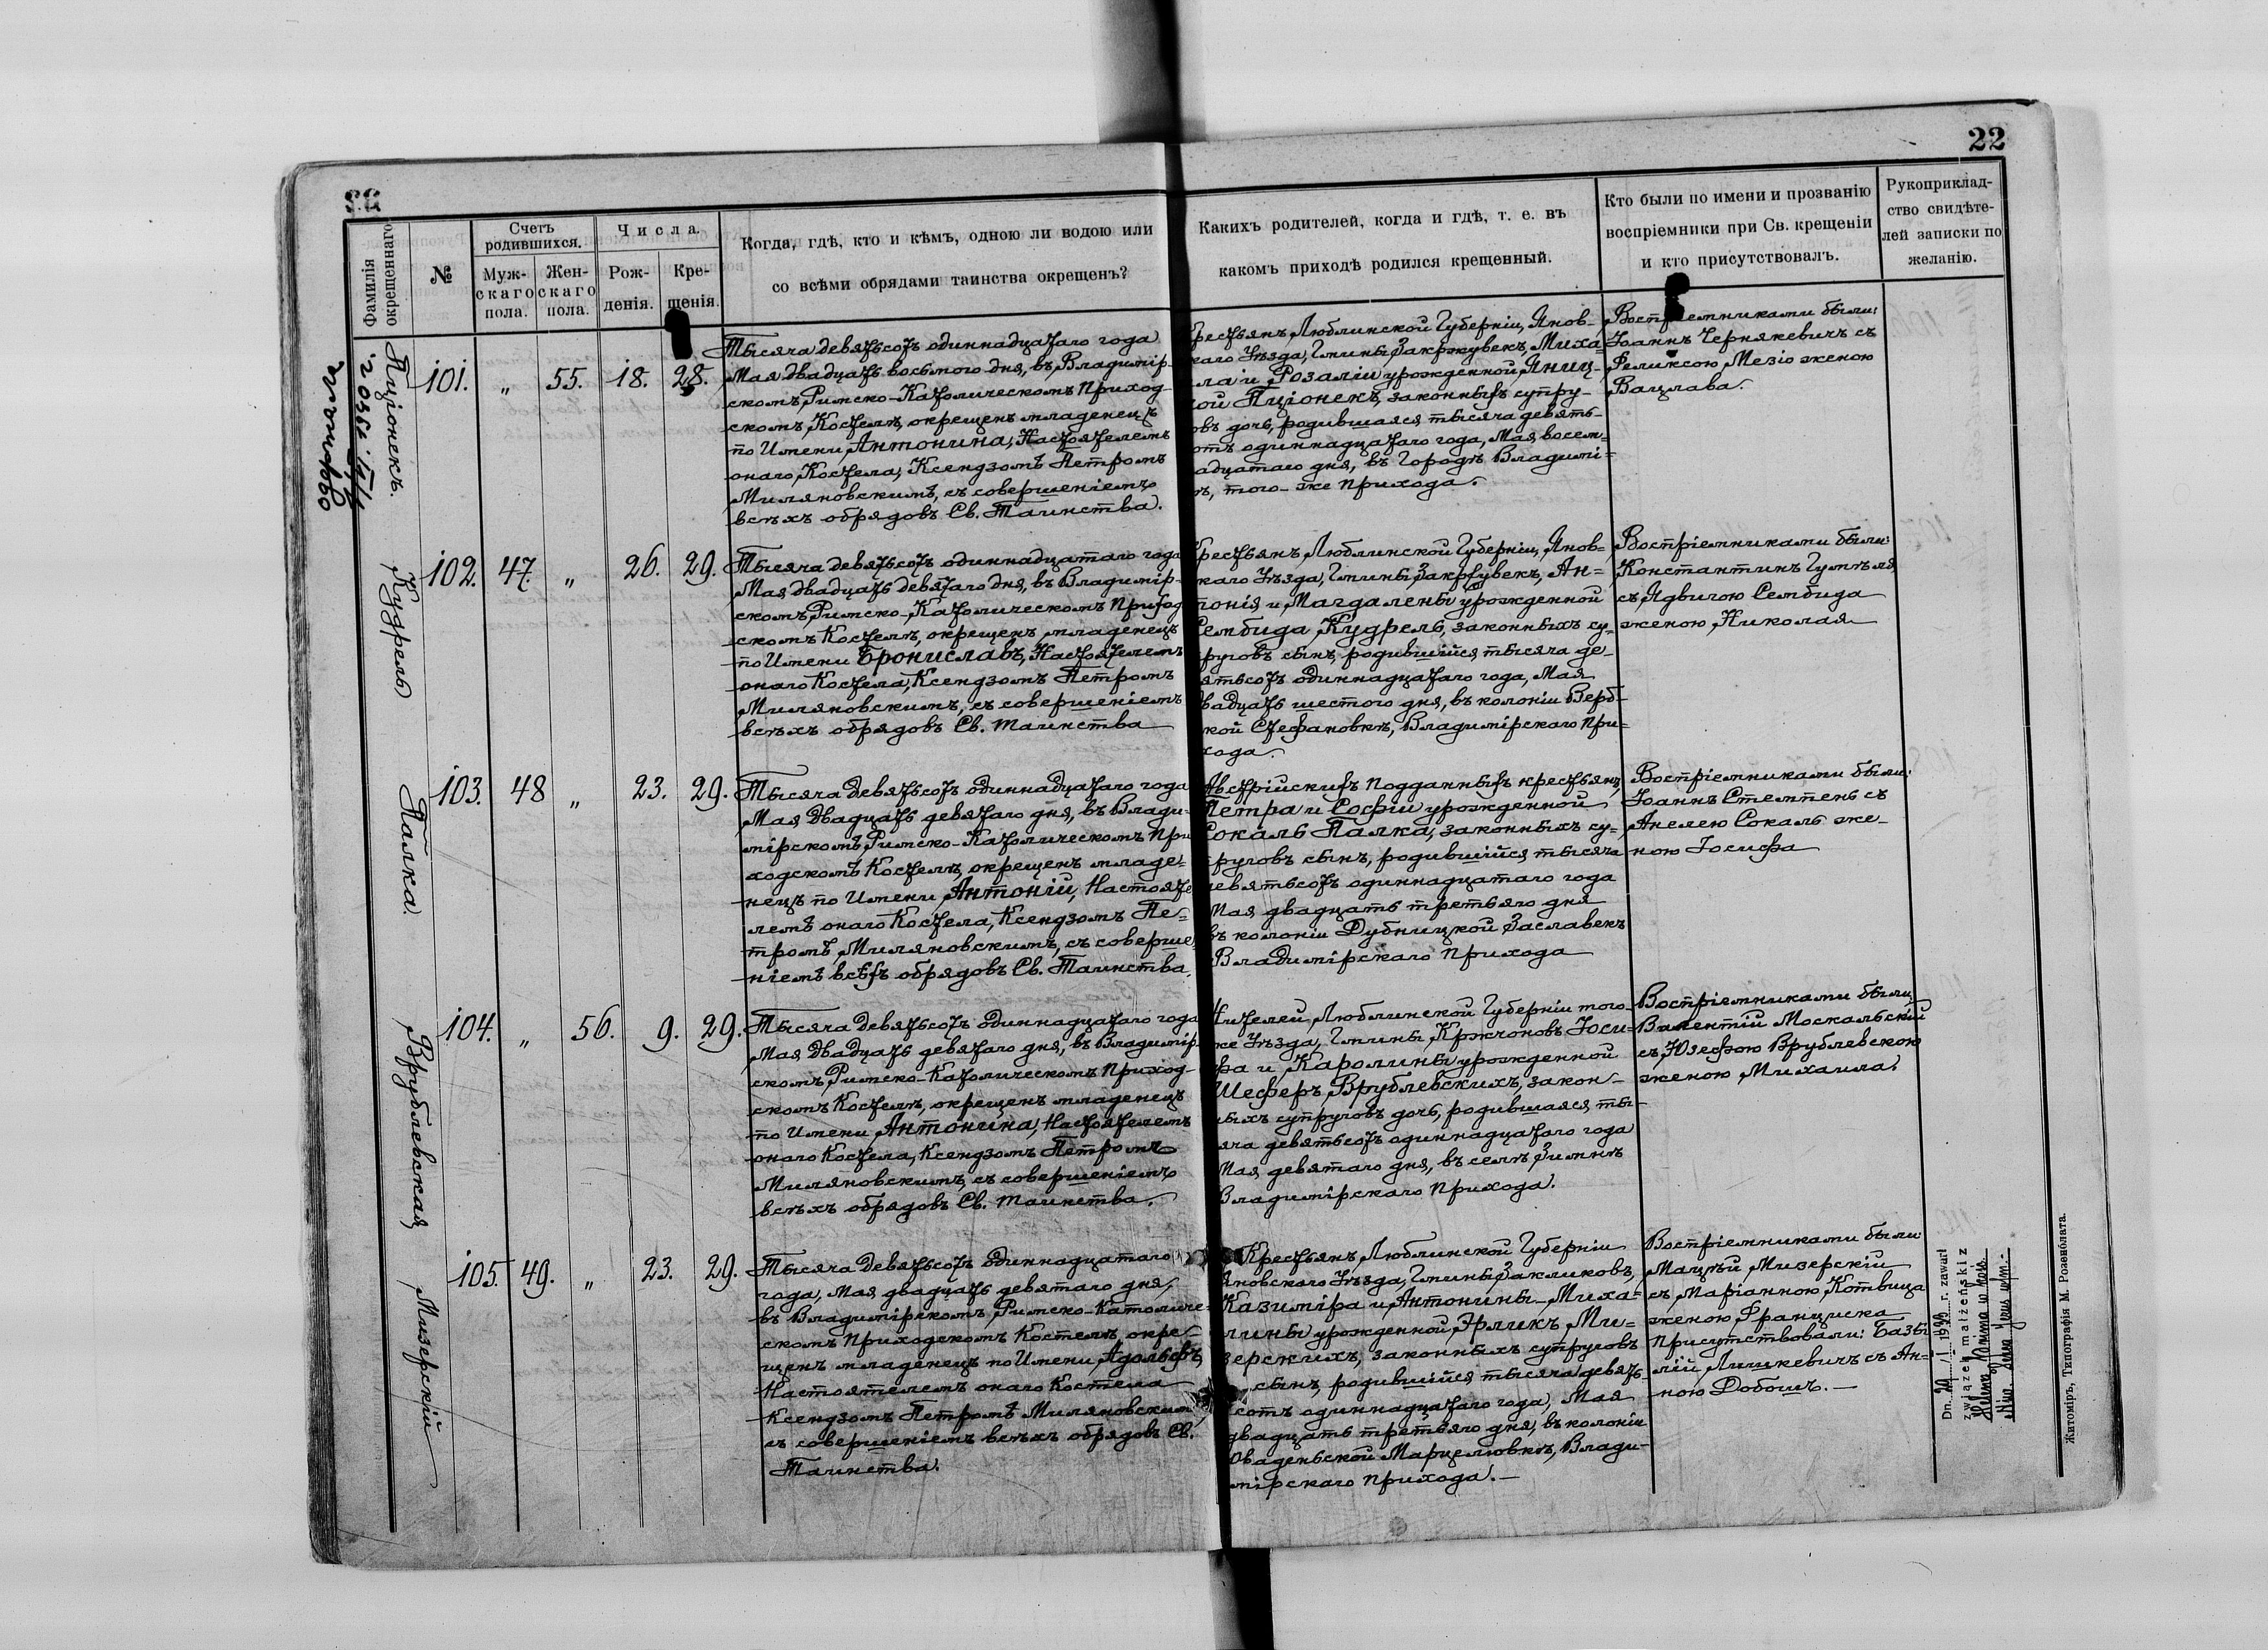 22
Фамилія окрещеннаго.
№
Счетъ родившихся.
Муж-скаго пола.
Жен-скаго пола.
Числа.
Рож-денія.
Кре-щенія.
Когда, гдѣ, кто и кѣмъ, одною ли водою или
со всѣми обрядами таинства окрещенъ?
Каких​ъ родителей, когда и гдѣ, т. е. въ
какомъ приходѣ родился крещенный.
Кто были по имени и прозванію
воспріемники при Св. крещеніи
и кто присутствовалъ.
Рукоприклад-
ство свидѣте-
лей записки по
желанію.
Пціонекъ.
101. „ 55. 18. 28.
Тысяча девятьсотъ одиннадцатаго года
Мая двадцать восьмого дня, въ Владимір-
скомъ Римско-Католическомъ Приход-
скомъ Костелѣ, окрещенъ младенецъ
по Имени Антонина, Настоятелемъ
онаго Костела, Ксендзомъ Петромъ
Миляновскимъ, съ совершеніемъ
всѣхъ обрядовъ Св. Таинства.
крестьянъ Люблинской Губерніи, Янов-
скаго Уѣзда, Гмины Закржувекъ, Миха-
ла и Розаліи урожденной Яниц-
кой Пціонекъ, законныхъ супру-
овъ дочь, родившаяся тысяча девять-
отъ одиннадцатаго года, Мая восем-
адцатаго дня, въ Городѣ Владимі-
ѣ, того-же Прихода.
Воспріемниками были:
Іоаннъ Чернякевичъ съ
Феликсою Мезіо женою
Вацлава.
Кудрель
102. 47. „ 26. 29.
Тысяча девятьсотъ одиннадцатаго года
Мая двадцать девятаго дня, въ Владимір-
скомъ Римско-Католическомъ Приход
скомъ Костелѣ, окрещенъ младенецъ
по Имени Брониславъ, Настоятелемъ
онаго Костела, Ксендзомъ Петромъ
Миляновскимъ, съ совершеніемъ
всѣхъ обрядовъ Св. Таинства
Крестьянъ Люблинской Губерніи, Янов-
скаго Уѣзда, Гмины Закржувекъ, Ан-
тонія и Магдалены урожденной
Сембида Кудрель, законныхъ су-
руговъ сынъ, родившійся тысяча де-
ятьсотъ одиннадцатаго года, Мая
двадцать шестого дня, въ колоніи Верб-
кой Стефановкѣ, Владимірскаго При-
хода.
Воспріемниками были:
Константинъ Гумѣля,
съ Ядвигою Сембида
женою Николая
Палка.
103. 48 „ 23. 29.
Тысяча девятьсотъ одиннадцатаго года
Мая двадцать девятаго дня, въ Влади-
мірскомъ Римско-Католическомъ При
ходскомъ Костелѣ, окрещенъ младе-
нецъ по Имени Антоній, Настояте
лемъ онаго Костела, Ксендзомъ Пе-
тромъ Миляновскимъ, съ соверше-
ніемъ всѣхъ обрядовъ Св. Таинства.
Австрійскихъ подданныхъ крестьянъ,
Петра и Софіи урожденной
Сокаль Палка, законныхъ су-
руговъ сынъ, родившійся тысяча
девятьсотъ одиннадцатаго года
Мая двадцать третьяго дня
въ колоніи Дубницкой Заславекъ
Владимірскаго Прихода
Воспріемниками были:
Іоаннъ Стемпень съ
Анелею Сокаль же-
ною Іосифа
Врублевская
104. „ 56. 9. 29.
Тысяча девятьсотъ одиннадцатаго года
Мая двадцать девятаго дня, въ Владимір-
скомъ Римско-Католическомъ Приход-
скомъ Костелѣ, окрещенъ младенецъ
по Имени Антонина, Настоятелемъ
онаго Костела, Ксендзомъ Петромъ
Миляновскимъ, съ совершеніемъ
всѣхъ обрядовъ Св. Таинства.
Жителей Люблинской Губерніи того-
же Уѣзда, Гмины Кржчоновъ Іоси-
фа и Каролины урожденной
Шеферъ Врублевскихъ, закон-
ныхъ супруговъ дочь, родившаяся ты-
яча девятьсотъ одиннадцатаго года
Мая девятаго дня, въ селѣ Зимнѣ
Владимірскаго Прихода.
Воспріемниками были,
Валентій Москальскій
съ Юзефою Врублевскою
женою Михаила.
Мизерскій
105. 49. „ 23. 29.
Тысяча девятьсотъ одиннадцатаго
года, Мая двадцать девятаго дня,
въ Владимірскомъ Римско-Католиче-
скомъ Приходскомъ Костелѣ, окре-
щенъ младенецъ по Имени Адольфъ,
Настоятелемъ онаго Костела
Ксендзомъ Петромъ Миляновским
съ совершеніемъ всѣхъ обрядовъ Св.
Таинства.
Крестьянъ Люблинской Губерніи
яновскаго Уѣзда, Гмины Закликовъ,
Казиміра и Антонины-Миха-
лины урожденной Эрликъ Ми-
зерскихъ, законныхъ супруговъ
сынъ, родившійся тысяча девять-
сотъ одиннадцатаго года, Мая
двадцать третьяго дня, въ колоніи
Оваденьской Марцелювкѣ, Влади-
мірскаго Прихода.-
Воспріемниками были
Мацѣй Мизерскій
съ Маріанною Котвица
женою Франциска
Присутствовали: Базы
лій Лицкевичъ съ Ан-
ною Добошъ.-
Dn. 29/I 1933 r. zawarł
związek małżeński z
Житоміръ, Типографія М. Розенблата.